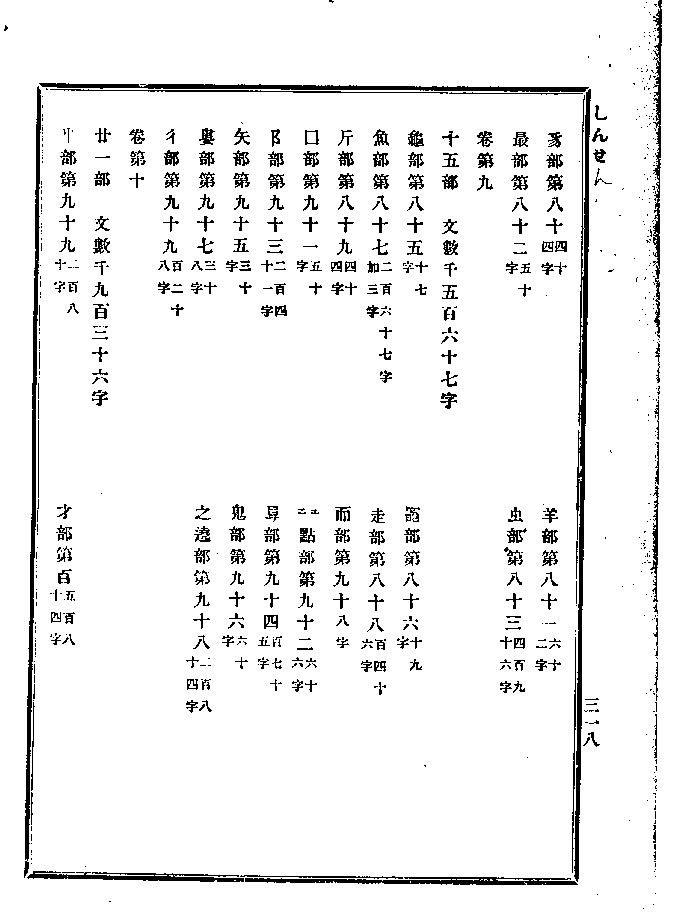 しんせん
豸部第八十四十四字
羊部第八十一六十二字
最部第八十二五十字
虫部第八十三四百九十六字
卷第九
十五部 文數千五百六十七字
龜部第八十五十七字
部第八十六十九字
魚部第八十七二百六十七字加三字
走部第八十八百四十六字
斤部第八十九四十四字
而部第九十八字
囗部第九十一五十字
點部第九十二六十六字
阝部第九十三二百四十一字
部第九十四百七十五字
矢部第九十五三十字
鬼部第九十六六十字
部第九十七三十八字
之遶部第九十八二百八十四字
彳部第九十九百二十八字
卷第十
廿一部 文數千九百三十六字
部第九十九二百八十字
才部第百五百八十四字
三一八